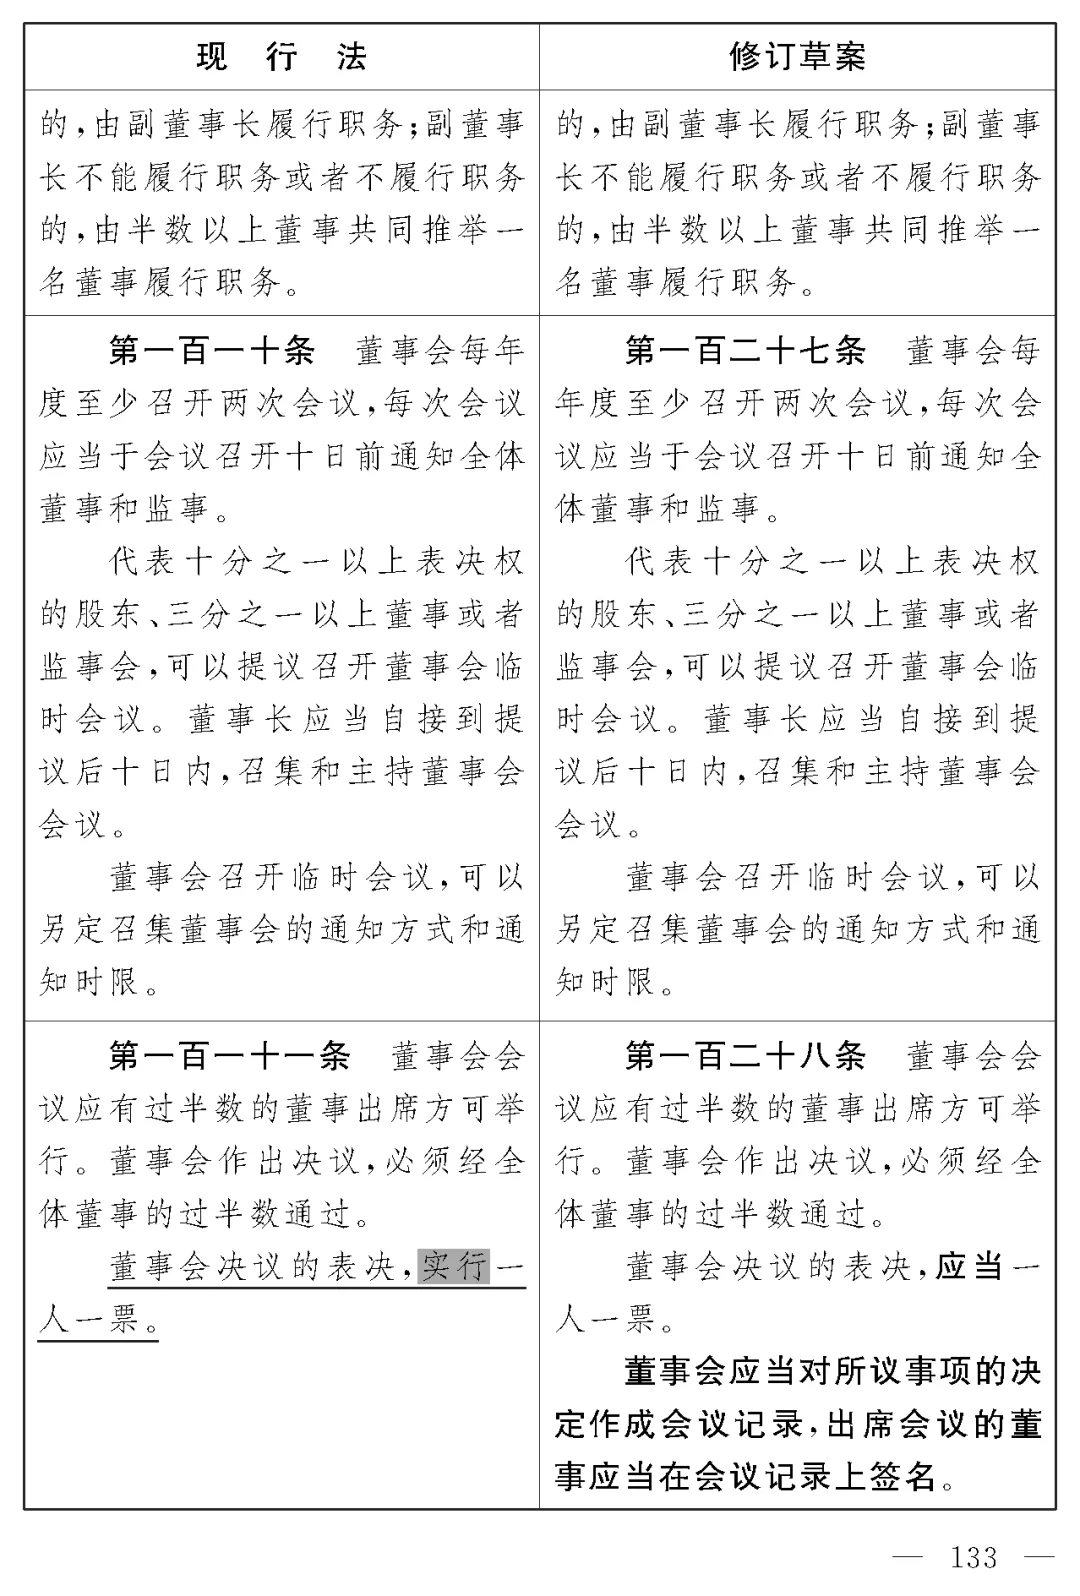 现 行 法
修订草案
的,由副董事长履行职务;副董事
长不能履行职务或者不履行职务
的,由半数以上董事共同推举一
名董事履行职务。
的,由副董事长履行职务;副董事
长不能履行职务或者不履行职务
的,由半数以上董事共同推举一
名董事履行职务。
第一百一十条 董事会每年
度至少召开两次会议,每次会议
应当于会议召开十日前通知全体
董事和监事。
代表十分之一以上表决权
的股东、三分之一以上董事或者
监事会,可以提议召开董事会临
时会议。董事长应当自接到提
议后十日内,召集和主持董事会
会议。
董事会召开临时会议,可以
另定召集董事会的通知方式和通
知时限。
第一百二十七条 董事会每
年度至少召开两次会议,每次会
议应当于会议召开十日前通知全
体董事和监事。
代表十分之一以上表决权
的股东、三分之一以上董事或者
监事会,可以提议召开董事会临
时会议。董事长应当自接到提
议后十日内,召集和主持董事会
会议。
董事会召开临时会议,可以
另定召集董事会的通知方式和通
知时限。
第一百一十一条 董事会会
议应有过半数的董事出席方可举
行。董事会作出决议,必须经全
体董事的过半数通过。
董事会决议的表决,实行一
人一票。
第一百二十八条 董事会会
议应有过半数的董事出席方可举
行。董事会作出决议,必须经全
体董事的过半数通过。
董事会决议的表决,应当一
人一票。
董事会应当对所议事项的决
定作成会议记录,出席会议的董
事应当在会议记录上签名。
— 133 —